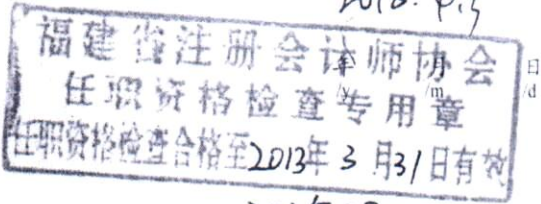 福建省注册会计师协会
任职资格检查专用章
任职资格检查合格至2013年3月31日有效
年 月 日
/y /m /d